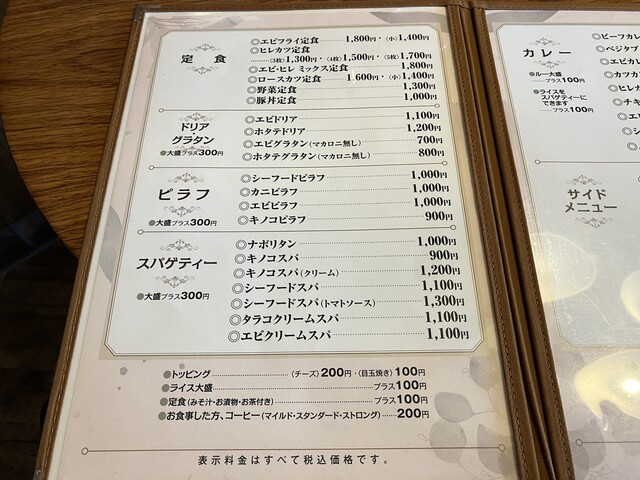 定食
◎エビフライ定食 1,800円・〈小〉1,400円
◎ヒレカツ定食
〈3枚〉1,300円・〈4枚〉1,500円・〈5枚〉1,700円
◎エビ・ヒレ ミックス定食 1,800円
◎ロースカツ定食 1,600円・〈小〉1,400円
◎野菜定食 1,300円
◎豚丼定食 1,000円
ドリア・グラタン
●大盛プラス300円
◎エビドリア 1,100円
◎ホタテドリア 1,200円
◎エビグラタン(マカロニ無し) 700円
◎ホタテグラタン(マカロニ無し) 800円
ピラフ
●大盛プラス300円
◎シーフードピラフ 1,000円
◎カニピラフ 1,000円
◎エビピラフ 1,000円
◎キノコピラフ 900円
スパゲティー
●大盛プラス300円
◎ナポリタン 1,000円
◎キノコスパ 900円
◎キノコスパ(クリーム) 1,200円
◎シーフードスパ 1,100円
◎シーフードスパ(トマトソース) 1,300円
◎タラコクリームスパ 1,100円
◎エビクリームスパ 1,100円
●トッピング 〈チーズ〉200円・〈目玉焼き〉100円
●ライス大盛 プラス100円
●定食(みそ汁・お漬物・お茶付き) プラス100円
●お食事した方、コーヒー(マイルド・スタンダード・ストロング) 200円
表示料金はすべて税込価格です。
カレー
●ルー大盛
プラス100円
●ライスを
スパゲティーに
できます
プラス100円
◎ビーフカレ
◎ベジタブ
◎エビカレ
◎カツカレ
◎ヒレカ
◎チキ
◎エビ
◎シ
サイド
メニュー